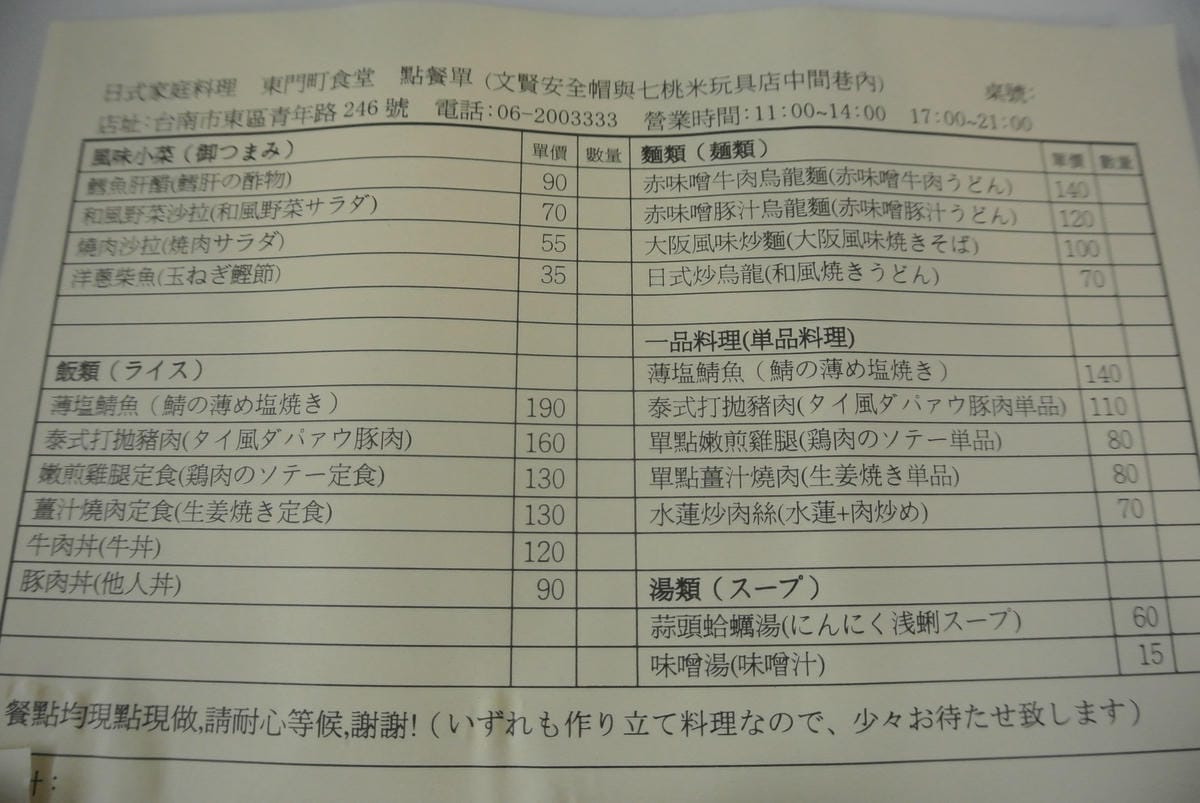 日式家庭料理 東門町食堂 點餐單 (文賢安全帽與七桃米玩具店中間巷內) 桌號:
店址:台南市東區青年路246號 電話:06-2003333 營業時間:11:00~14:00 17:00~21:00
風味小菜（御つまみ） 單價 數量 麵類（麺類） 單價 數量
鱈魚肝醋(鱈肝の酢物) 90 赤味噌牛肉烏龍麵(赤味噌牛肉うどん) 140
和風野菜沙拉(和風野菜サラダ) 70 赤味噌豚汁烏龍麵(赤味噌豚汁うどん) 120
燒肉沙拉(焼肉サラダ) 55 大阪風味炒麵(大阪風味焼きそば) 100
洋蔥柴魚(玉ねぎ鰹節) 35 日式炒烏龍(和風焼きうどん) 70
一品料理(単品料理)
飯類（ライス） 薄塩鯖魚（鯖の薄め塩焼き） 140
薄塩鯖魚（鯖の薄め塩焼き） 190 泰式打拋豬肉(タイ風ダパァウ豚肉単品) 110
泰式打拋豬肉(タイ風ダパァウ豚肉) 160 單點嫩煎雞腿(鶏肉のソテー単品) 80
嫩煎雞腿定食(鶏肉のソテー定食) 130 單點薑汁燒肉(生姜焼き単品) 80
薑汁燒肉定食(生姜焼き定食) 130 水蓮炒肉絲(水蓮+肉炒め) 70
牛肉丼(牛丼) 120
豚肉丼(他人丼) 90 湯類（スープ）
蒜頭蛤蠣湯(にんにく浅蜊スープ) 60
味噌湯(味噌汁) 15
餐點均現點現做,請耐心等候,謝謝!（いずれも作り立て料理なので、少々お待たせ致します）
計：